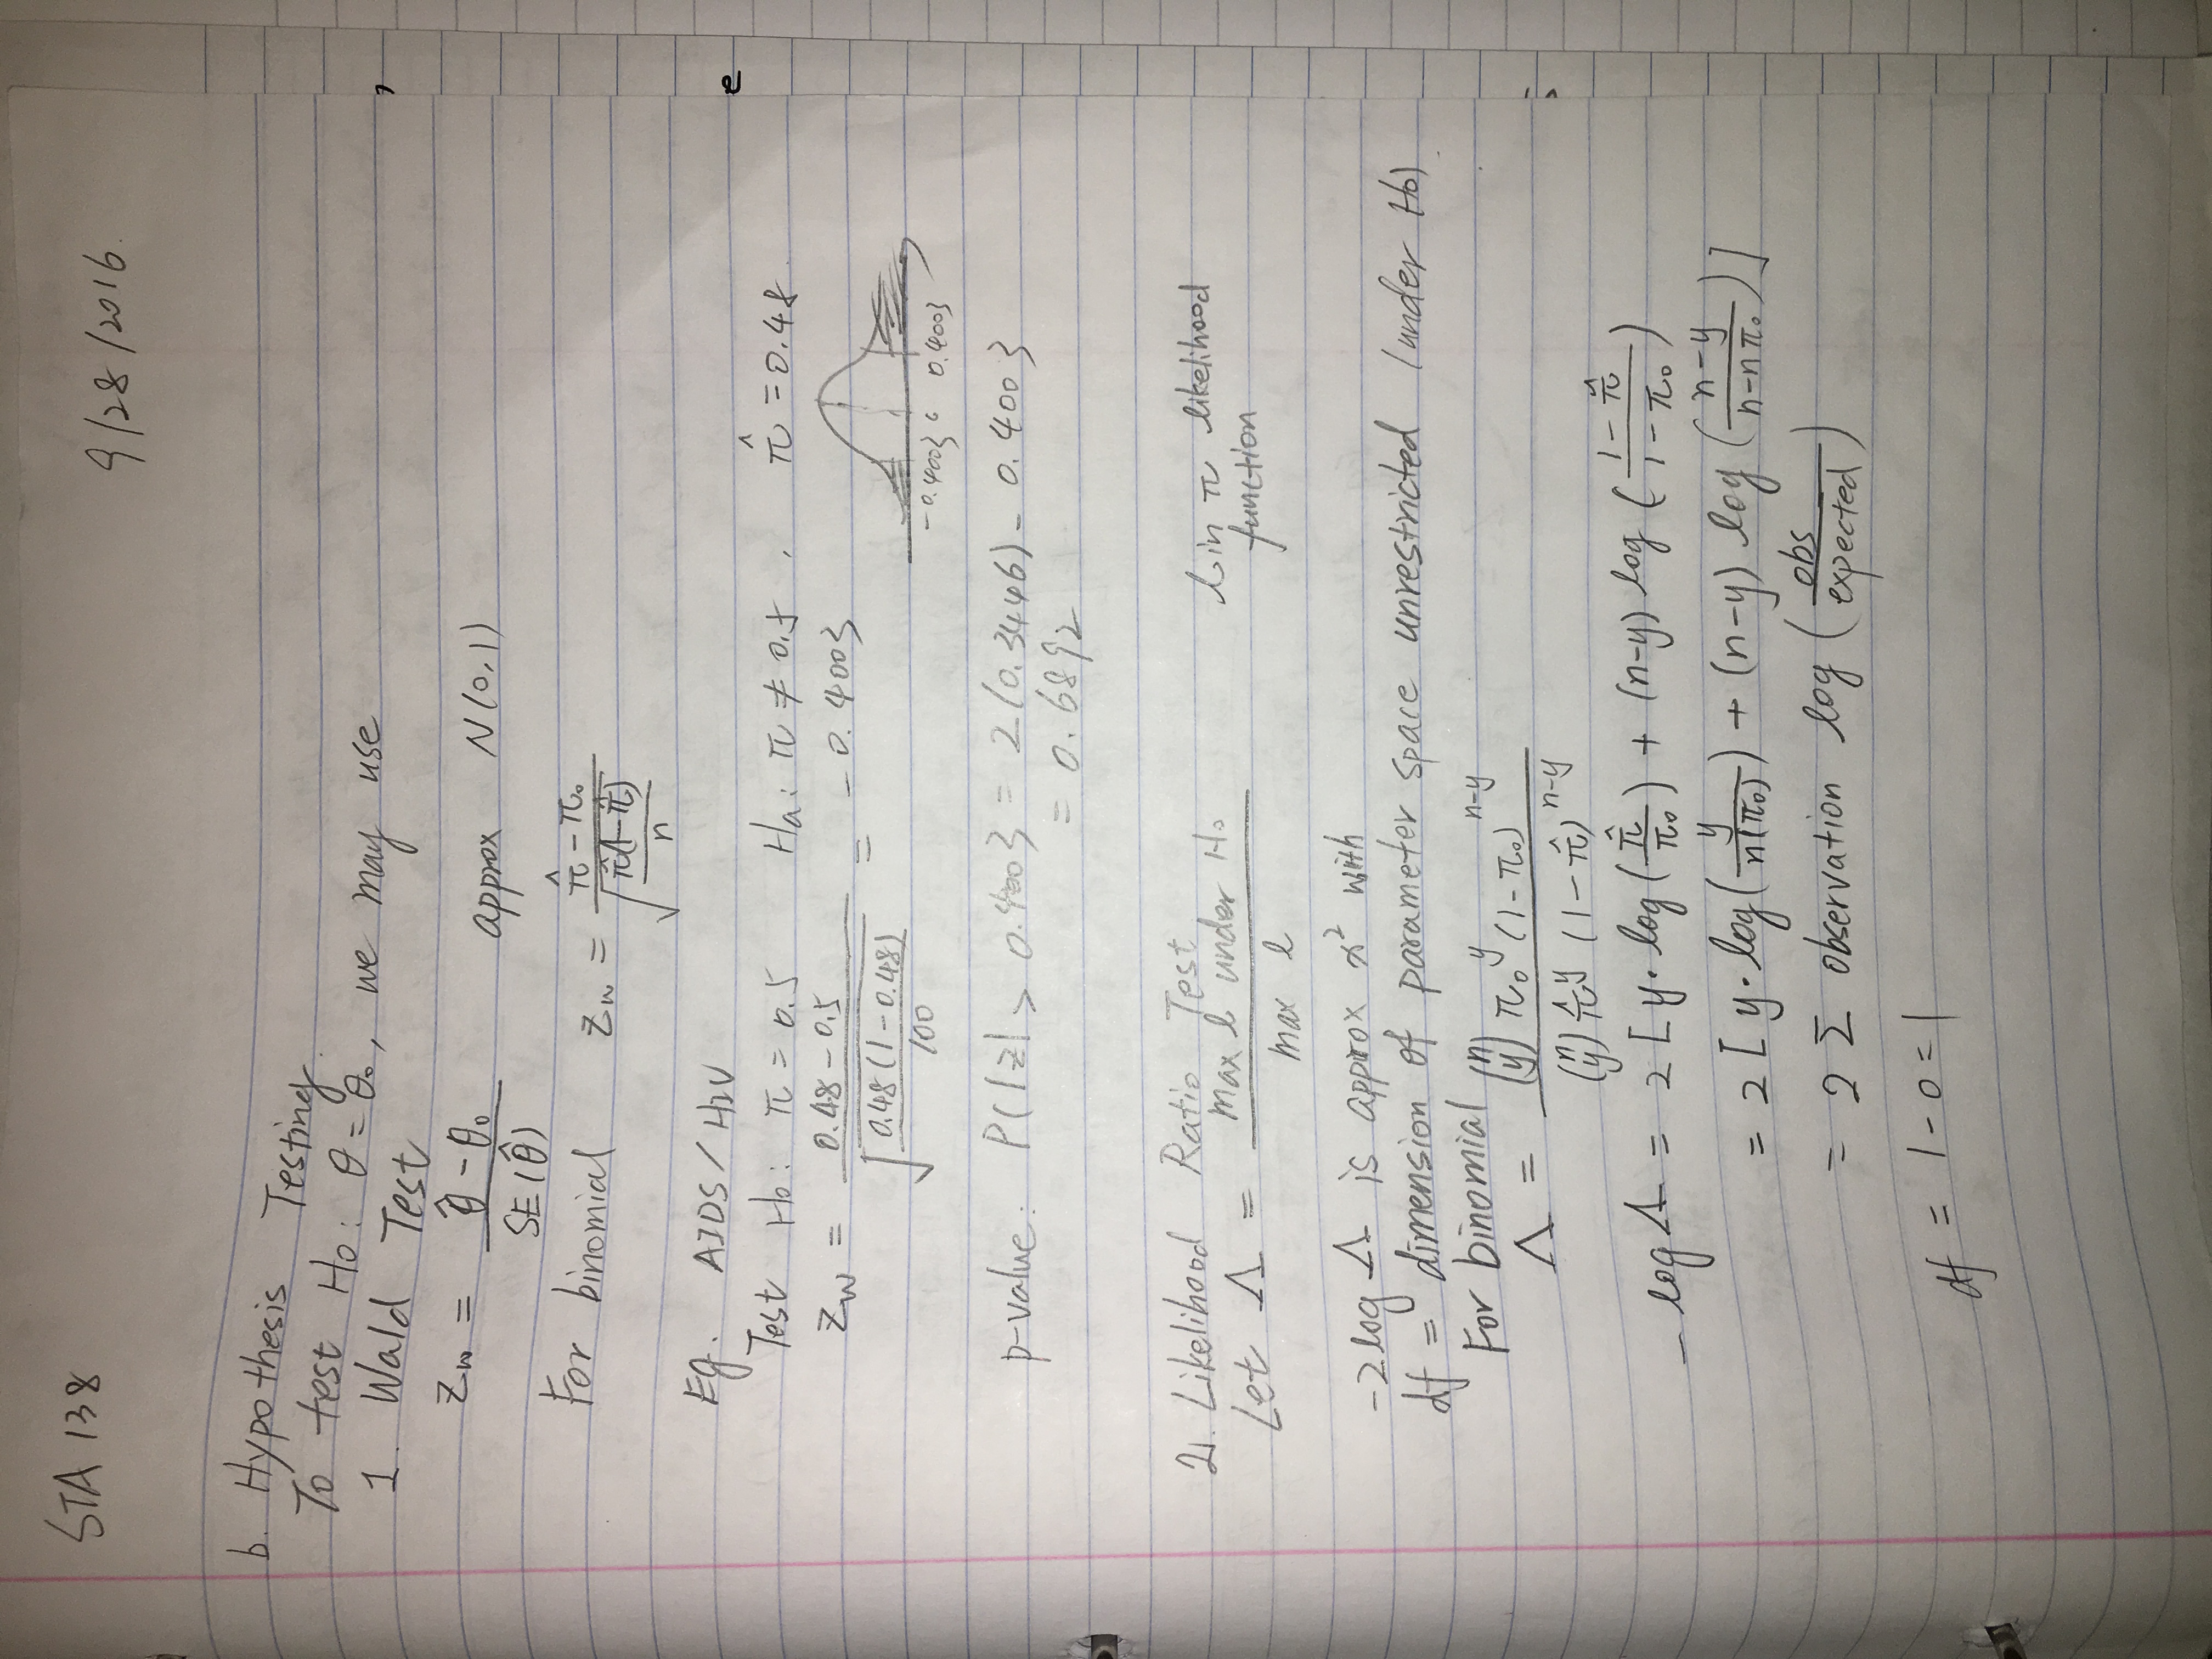 STA 138
9/28/2016.
b. Hypothesis Testing.
To test H₀: θ = θ₀, we may use
1. Wald Test
Z_w = (θ̂ - θ₀) / SE(θ̂) approx N(0,1)
For binomial Z_w = (π̂ - π₀) / √(π̂(1-π̂) / n)
Eg. AIDS / HIV
Test H₀: π = 0.5 Ha: π ≠ 0.5 , π̂ = 0.48.
Z_w = (0.48 - 0.5) / √(0.48 (1-0.48) / 100) = -0.4003
-0.4003 0 0.4003
p-value: P(|z| > 0.4003 = 2(0.3446) - 0.4003
= 0.6892
2. Likelihood Ratio Test
Let Λ = max l under H₀ / max l
l in π likelihood
function
-2log Λ is approx x² with
df = dimension of parameter space unrestricted (under H₀)
For binomial
Λ = (n y) π₀^y (1-π₀)^(n-y) / (n y) π̂^y (1-π̂)^(n-y)
-log Λ = 2 [ y·log(π̂/π₀) + (n-y) log ((1-π̂)/(1-π₀))
= 2 [ y·log(y/n(π₀)) + (n-y) log ((n-y)/(n-nπ₀)) ]
= 2 Σ observation log (obs/expected)
df = 1-0=1
e